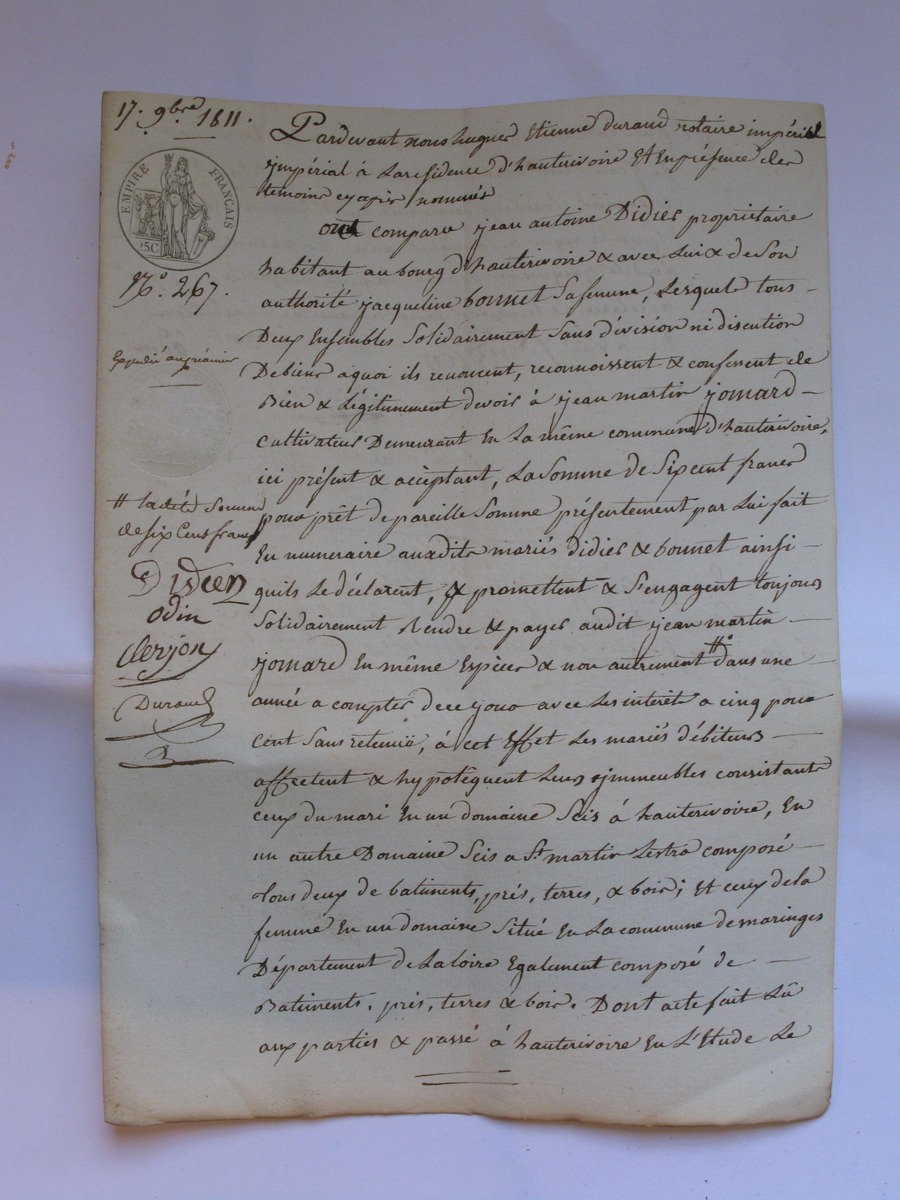 17. 9bre 1811.
EMPIRE FRANÇAIS
25C
N°. 267.
Expédié au créancier
# ladite Somme
de six Cens francs
Didier
odin
Clerjon
Durand
Pardevant nous hugues Etienne durand notaire impérial
impérial à La residence d'hauterivoire Et En présence des
temoins cy après nommés
ont comparu jean antoine Didier propriétaire
habitant au bourg d'hauterivoire & avec Lui & de Son
authorité jacqueline bonnet Sa femme, Lesquels tous
Deux Ensembles Solidairement Sans division ni discution
De biens a quoi ils renoncent, reconnoissent & confessent de
Bien & Légitimement devoir à jean martin jomard
Cultivateur Demeurant En La même commune d'hauterivoire,
ici présent & acceptant, La Somme de Six cent francs
pour prêt de pareille Somme présentement par Lui fait
En numeraire auxdits mariés didier & bonnet ainsi
quils Le déclarent, & promettent & S'engagent toujours
Solidairement Rendre & payer audit jean martin
jomard En même Espèces & non autrement # dans une
année a compter de ce jour avec Les interêts a cinq pour
cent Sans retenüe, à cet Effet Les mariés débiteurs
affectent & hypotèquent Leurs immeubles consistants
ceux du mari En un domaine Scis à hauterivoire, En
un autre Domaine Scis a St. martin Lestra composé
tous deux de batiments, prés, terres, & bois; Et ceux de la
femme En un domaine Situé En La commune de maringes
Département de La loire Egalement composé de
Batiments, prés, terres & bois. Dont acte fait Lû
aux parties & passé à hauterivoire En L'Etude Le